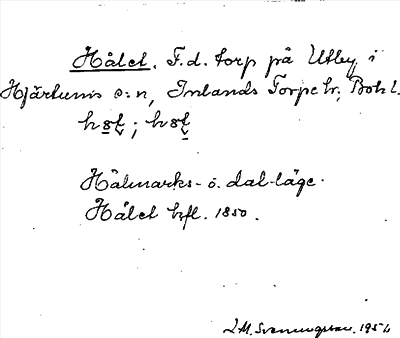 Hålet. F.d. torp på Utby i
Hjärtums s:n, Inlands Torpe hr, Boh l.
Hålmarks- o. dal-läge.
Hålet hfl. 1850.
J.M. Svenungsson. 1954